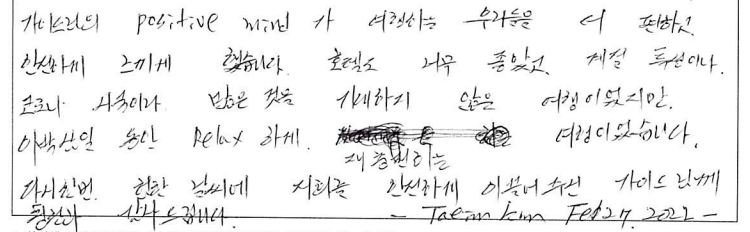 가이드님의 positive mind 가 여행하는 우리들을 더 편하고
안전하게 느끼게 했습니다. 호텔도 너무 좋았고, 계절 특선이나.
코로나 시국이라 많은 것을 기대하지 않은 여행이었지만.
이박삼일 동안 Relax 하게. 재충전하는 여행이었습니다.
다시한번. 험한 날씨에 저희를 안전하게 이끌어주신 가이드님께
감사드립니다. - Taemin kim Feb 27. 2022 -